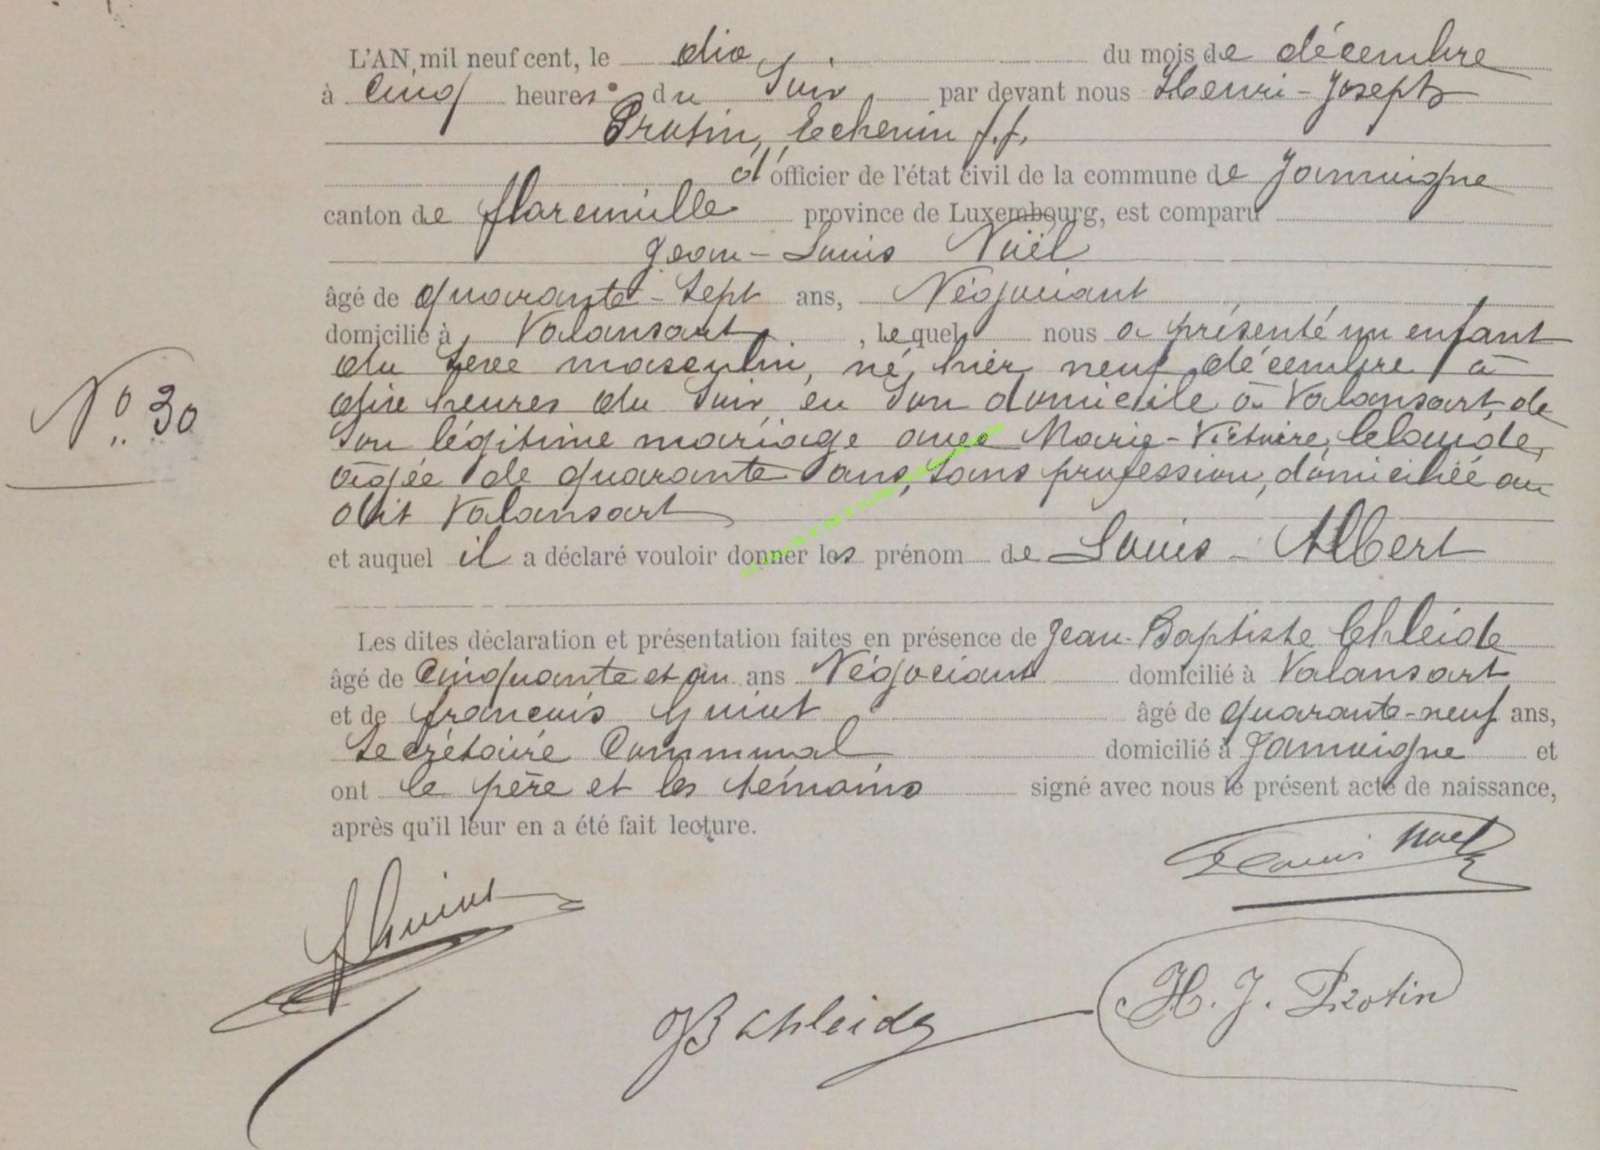 L'AN mil neuf cent, le dix du mois de décembre
à cinq heures du soir par devant nous Henri-Joseph
Protin, Echevin f.f.
d'officier de l'état civil de la commune de Jamoigne
canton de Florenville province de Luxembourg, est comparu
Jean-Louis Noël
âgé de quarante-sept ans, Négociant
domicilié à Valansart, lequel nous a présenté un enfant
du sexe masculin, né hier neuf décembre à
dix heures du soir en son domicile à Valansart, de
N° 30
son légitime mariage avec Marie-Victoire,
âgée de quarante ans, sans profession, domiciliée au
dit Valansart
et auquel il a déclaré vouloir donner les prénom de Louis-Albert
Les dites déclaration et présentation faites en présence de Jean-Baptiste Schleide
âgé de cinquante et un ans Négociant domicilié à Valansart
et de françois Guiot âgé de quarante-neuf ans,
Secrétaire Communal domicilié à Jamoigne et
ont le père et les témoins signé avec nous le présent acte de naissance,
après qu'il leur en a été fait lecture.
Louis Noel
f Guiot
H. J. Protin
JB Schleide